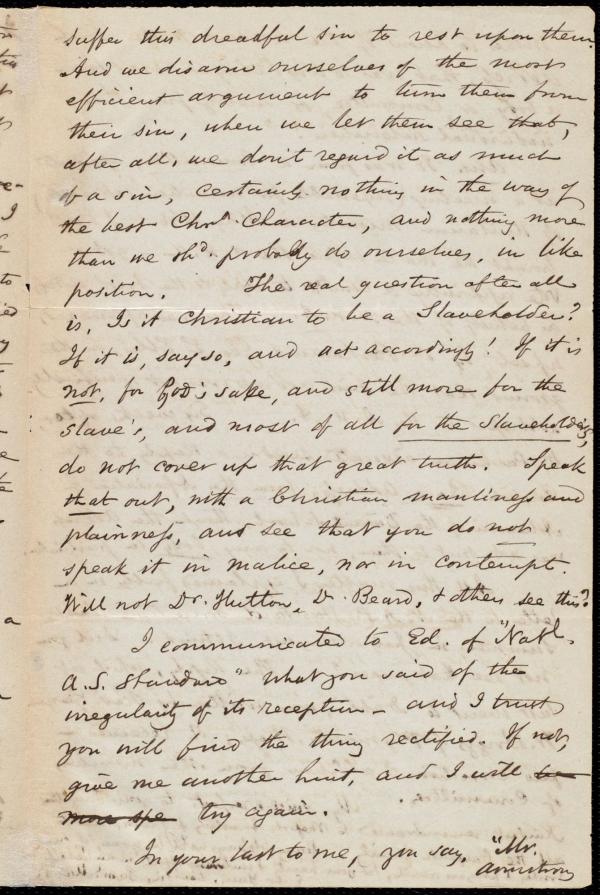 suffer this dreadful sin to rest upon them.
And we disarm ourselves of the most
efficient argument to turn them from
their sin, when we let them see that,
after all, we don't regard it as much
of a sin, certainly nothing in the way of
the best Chrn. Character, and nothing more
than we shd. probably do ourselves, in like
position. The real question after all
is, Is it Christian to be a Slaveholder?
If it is, say so, and act accordingly! If it is
not, for God's sake, and still more for the
slave's, and most of all for the Slaveholder's,
do not cover up that great truth. Speak
that out, with a Christian manliness and
plainness, and see that you do not
speak it in malice, nor in contempt.
Will not Dr. Hutton, Dr. Beard, & others see this?
I communicated to Ed. of "Natl.
A.S. Standard" what you said of the
irregularity of its reception - and I trust
you will find the thing rectified. If not,
give me another hint, and I will be
more spe try again.
In your last to me, you say, "Mr.
Armstrong